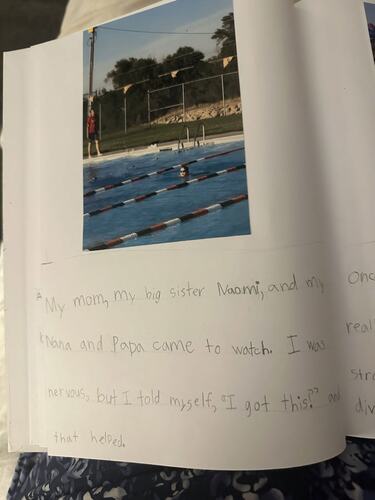 My mom, my big sister Naomi, and my
Nana and Papa came to watch. I was
nervous, but I told myself, "I got this!" and
that helped.
Onc
real
stro
div